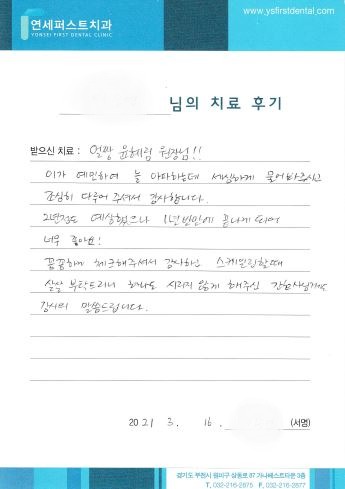 연세퍼스트치과
YONSEI FIRST DENTAL CLINIC
www.ysfirstdental.com
님의 치료 후기
받으신 치료 : 얼짱 윤혜림 원장님!!
이가 예민하여 늘 아파하는데 세심하게 물어봐주시고
조심히 다루어 주셔서 감사합니다.
2년정도 예상했으나 1년반만에 끝나게 되어
너무 좋아요!
꼼꼼하게 체크해주셔서 감사하고 스케일링할때
살살 부탁드리니 하나도 시리지 않게 해주신
감사의 말씀드립니다.
2021 3. 16 (서명)
경기도 부천시 원미구 상동로 87 가나베스트타운 3층
T. 032-216-2875 F. 032-216-2877